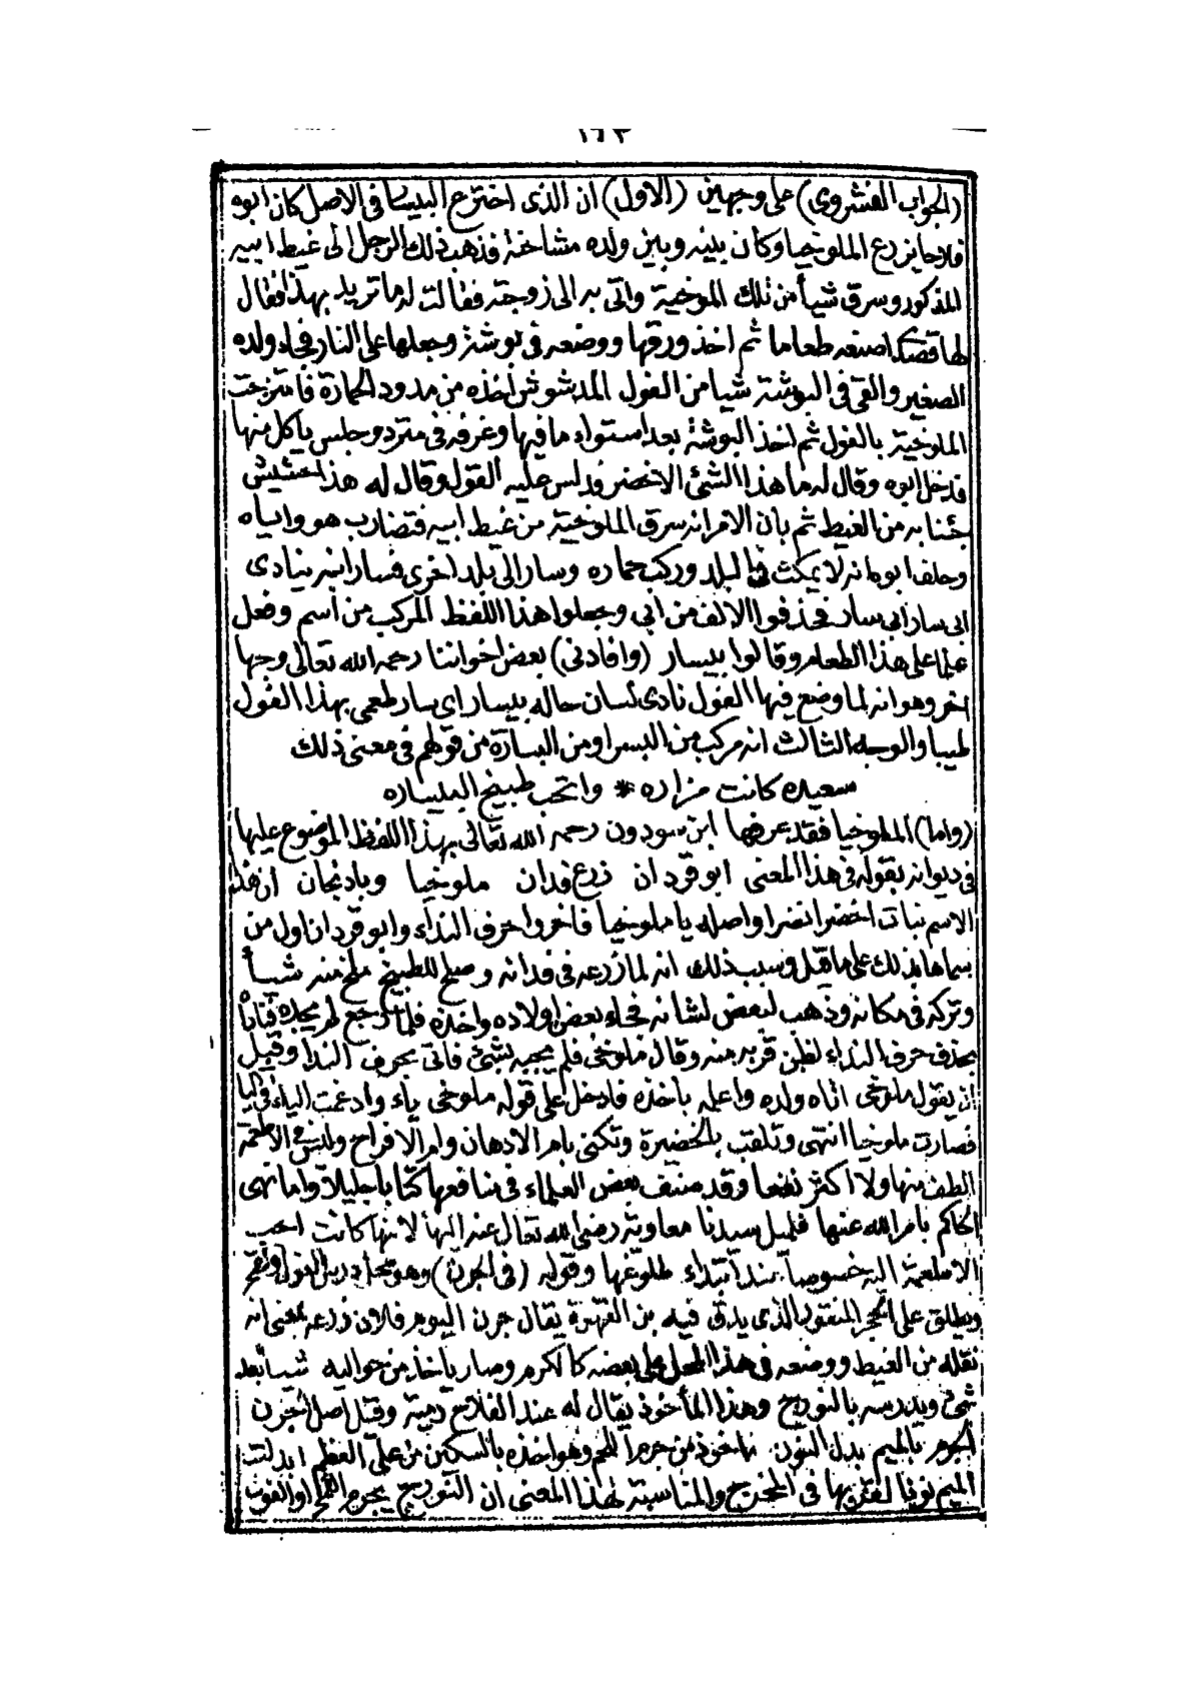 ١٦٣
(الجواب الفشروى) على وجهين (الاول) ان الذى اخترع البيسار فى الاصل كان ابوه
فلاحا يزرع الملوخيا وكان بينه وبين ولده مشاحنة فذهب ذلك الرجل الى غيط ابيه
المذكور وسرق شيأ من تلك الملوخية واتى به الى زوجته فقالت له ما تريد بهذا فقال
لها قصدى اصنعه طعاما ثم اخذ ورقها ووضعه فى بوشة وجعلها على النار فجاء ولده
الصغير والقى فى البوشة شيا من الفول المدشوش اخذه من مدود الحمارة فامتزجت
الملوخية بالفول ثم اخذ البوشة بعد استواء ما فيها وغرفه فى مترد وجلس ياكل منها
فدخل ابوه وقال له ما هذا الشئ الاخضر فدلس عليه القول وقال له هذا حشيش
جئنا به من الغيط ثم بان الامر انه سرق الملوخية من غيط ابيه فتضارب هو واياه
وحلف ابوه انه لا يمكث فى البلد وركب حماره وسار الى بلد اخرى فسار ابنه ينادى
ابى سار ابى سار فحذفوا الالف من ابى وجعلوا هذا اللفظ المركب من اسم وفعل
علما على هذا الطعام وقالوا بيسار (وافادنى) بعض اخواننا رحمه الله تعالى وجها
اخر وهو انه لما وضع فيها الفول نادى لسان حاله بيسار اى سار طعمى بهذا الفول
طيبا والوجه الثالث انه مركب من اليسر او من البسارة من قولهم فى معنى ذلك
سعيده كانت مزاره * واتحب طبيخ البيساره
(واما) الملوخيا فقد عرفها ابن سودون رحمه الله تعالى بهذا اللفظ الموضوع عليها
فى ديوانه بقوله فى هذا المعنى ابو قردان زرع فدان ملوخيا وبادنجان ان هذا
الاسم نبات اخضر انضرا واصله يا ملوخيا فاخروا حرف النداء وابو قردان اول من
سماها بذلك على ما قيل وسبب ذلك انه لما زرعه فى فدانه وصلح للطبيخ ملخ منه شيأ
وتركه فى مكانه وذهب لبعض لشانه فجاء بعض اولاده واخذه فلما رجع لم يجده فنادا
بحذف حرف النداء لظن قربه منه وقال ملوخى فلم يجبه بشئ فاتى بحرف الندا وقبل
ان يقوله ملوخى اتاه ولده واعلمه باخذه فادخل على قوله ملوخى ياء وادغمت الياء فى اليا
فصارت ملوخيا انتهى وتلقب بالخضيرة وتكنى بام الادهان وام الافراح وليس فى الاطعمة
الطف منها ولا اكثر نفعا وقد صنف بعض العلماء فى منافعها كتابا جليلا واما نهى
الحاكم بامر الله عنها فلميل سيدنا معاوية رضى الله تعالى عنه اليها لانها كانت احب
الاطعمة اليه خصوصا عند ابتداء طلوعها وقوله (فى الجرن) وهو محل دريس الفول والقمح
ويطلق على الحجر المنقور الذى يدق فيه بن القهوة يقال جرن اليوم فلان زرعه بمعنى انه
نقله من الغيط ووضعه فى هذا المحل على بعضه كالكرم وصار ياخذ من حواليه شيأ بعد
شئ ويدرسه بالنورج وهذا المأخوذ يقال له عند الفلاح رمية وقيل اصل الجرن
الجرم بالميم بدل النون ماخوذ من جرم اللحم وهو اخذه بالسكين من على العظم ابدلت
الميم نونا لقربها فى المخرج والمناسبة لهذا المعنى ان النورج يجرم القمح او الفول